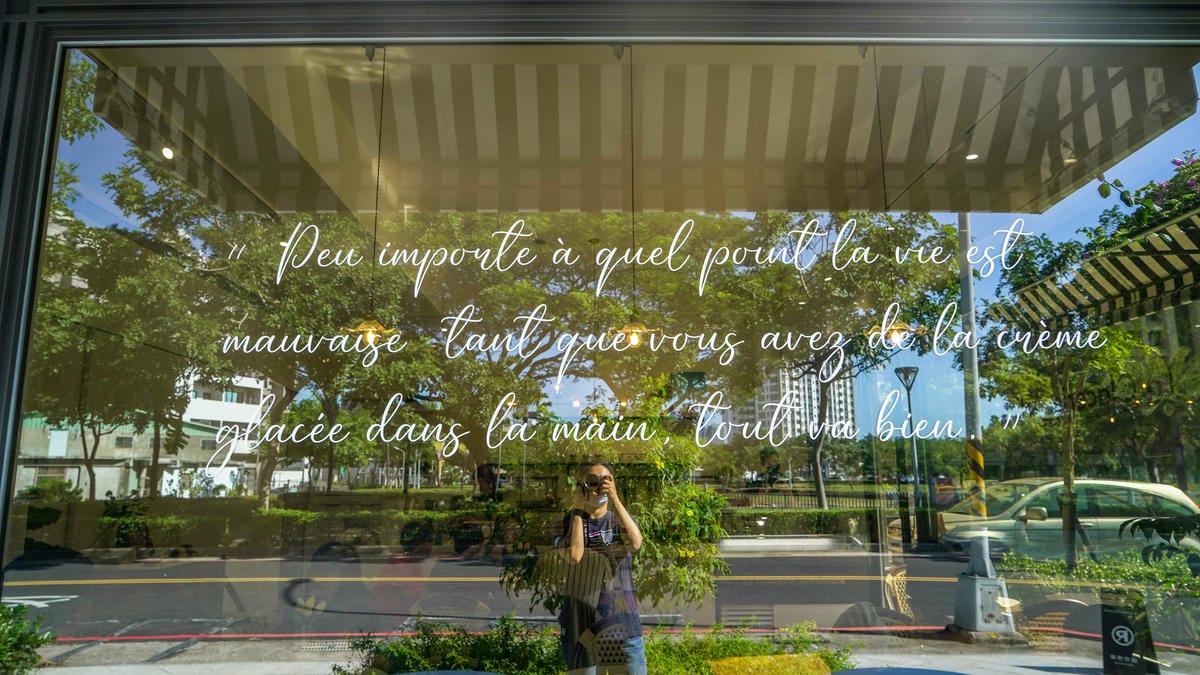 " Peu importe à quel point la vie est
mauvaise tant que vous avez de la crème
glacée dans la main, tout va bien. "